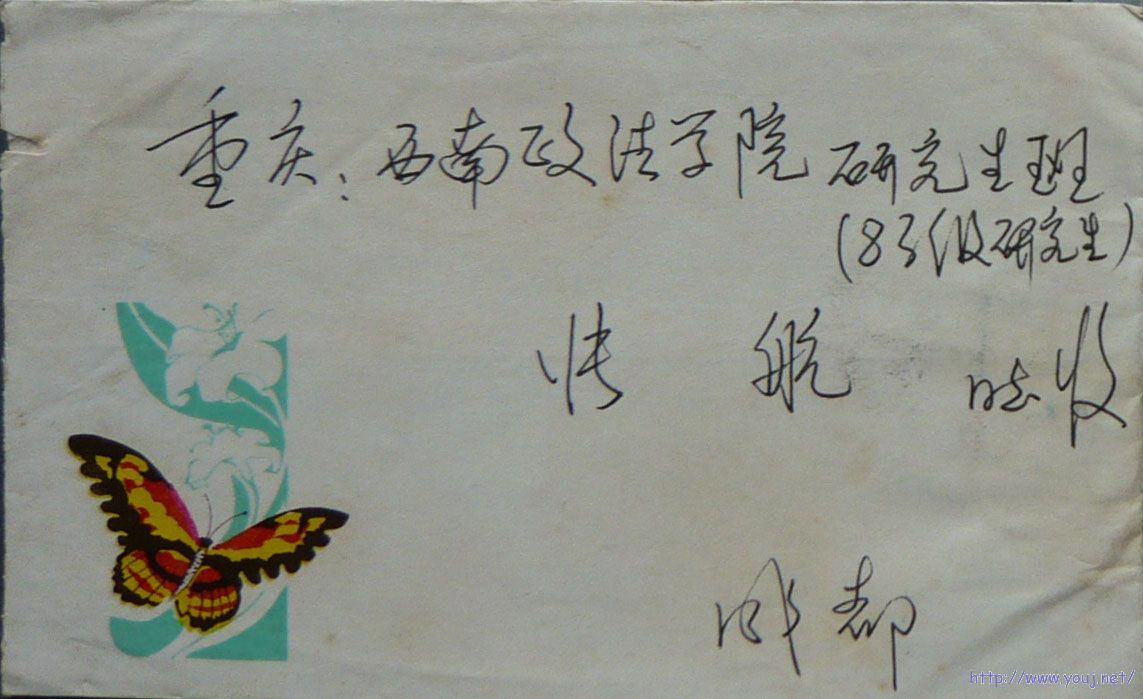 重庆：西南政法学院研究生班
(83级研究生)
张 航 收
成都
http://www.youj.net/